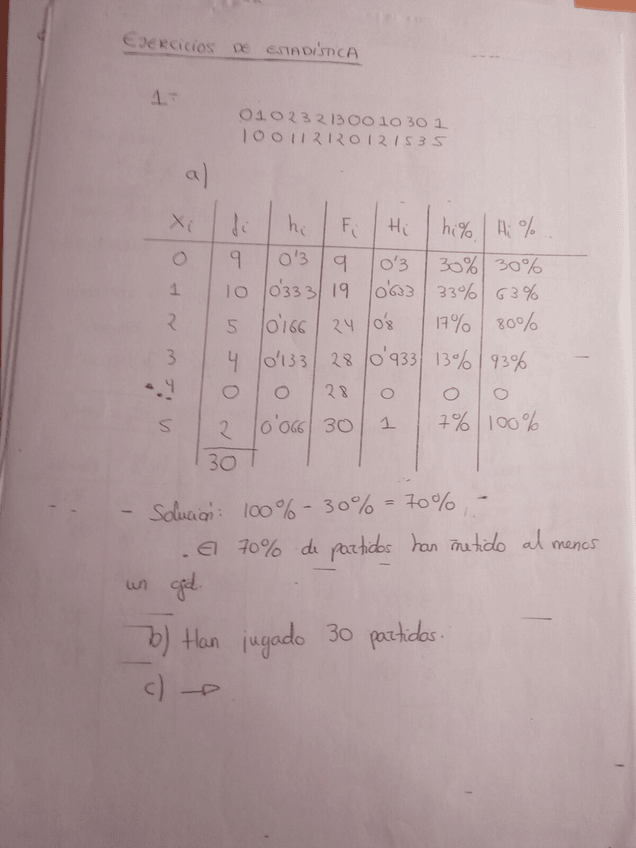 EJERCICIOS DE ESTADÍSTICA
1-
010232130010301
100112120121535
a)
Xi fi hi Fi Hi hi% Hi %
0 9 0'3 9 0'3 30% 30%
1 10 0'333 19 0'633 33% 63%
2 5 0'166 24 0'8 17% 80%
3 4 0'133 28 0'933 13% 93%
4 0 0 28 0 0 0
5 2 0'066 30 1 7% 100%
30
- Solución: 100% - 30% = 70%
. El 70% de partidos han metido al menos
un gol.
b) Han jugado 30 partidos.
c) →